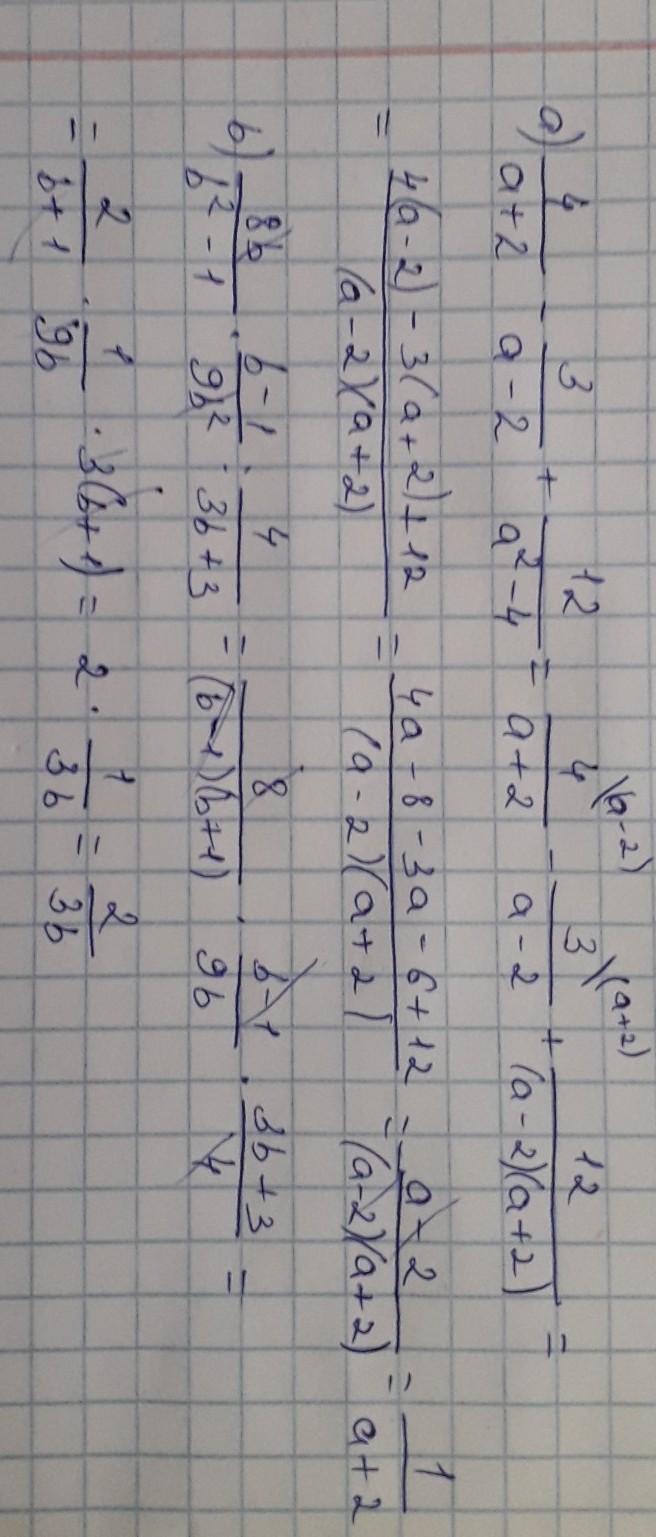 a) 4/(a+2) - 3/(a-2) + 12/(a²-4) = 4\(a-2)/(a+2) - 3\(a+2)/(a-2) + 12/((a-2)(a+2)) =
= (4(a-2)-3(a+2)+12)/((a-2)(a+2)) = (4a-8-3a-6+12)/((a-2)(a+2)) = (a-2)/((a-2)(a+2)) = 1/(a+2)
b) 8b/(b²-1) · (b-1)/(9b²) : 4/(3b+3) = 8/((b-1)(b+1)) · (b-1)/(9b) · (3b+3)/4 =
= 2/(b+1) · 1/(9b) · 3(b+1) = 2 · 1/(3b) = 2/(3b)